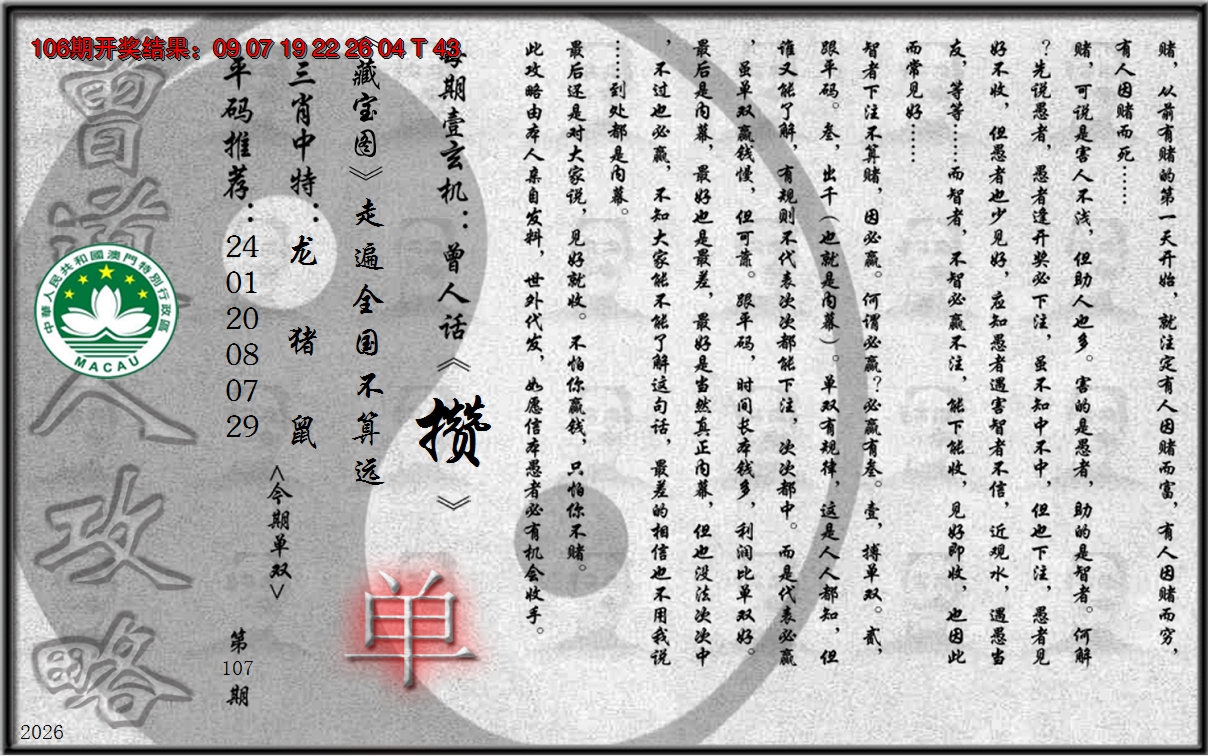 106期开奖结果：09 07 19 22 26 04 T 43
赌，从前有赌的第一天开始，就注定有人因赌而富，有人因赌而穷，
有人因赌而死……
赌，可说是害人不浅，但助人也多。害的是愚者，助的是智者。何解
？先说愚者，愚者逢开奖必下注，虽不知中不中，但也下注，愚者见
好不收，但愚者也少见好，应知愚者遇害智者不信，近观水，遇愚当
友，等等……而智者，不智必赢不注，能下能收，见好即收，也因此
而常见好……
智者下注不算赌，因必赢。何谓必赢？必赢有叁。壹，搏单双。贰，
跟平码。叁，出千（也就是内幕）。单双有规律，这是人人都知，但
谁又能了解，有规则不代表次次都能下注，次次都中。而是代表必赢
，虽单双赢钱慢，但可靠。跟平码，时间长本钱多，利润比单双好。
最后是内幕，最好也是最差，最好是当然真正内幕，但也没法次次中
，不过也必赢，不知大家能不能了解这句话，最差的相信也不用我说
……到处都是内幕。
最后还是对大家说，见好就收。不怕你赢钱，只怕你不赌。
此攻略由本人亲自发料，世外代发，如愿信本愚者必有机会收手。
每期壹玄机：曾人话《攒》
《藏宝图》走遍全国不算远
单
三肖中特：龙 猪 鼠
<今期单双>
平码推荐：24 01 20 08 07 29
第107期
曾道人攻略
中華人民共和國澳門特別行政區
MACAU
2026